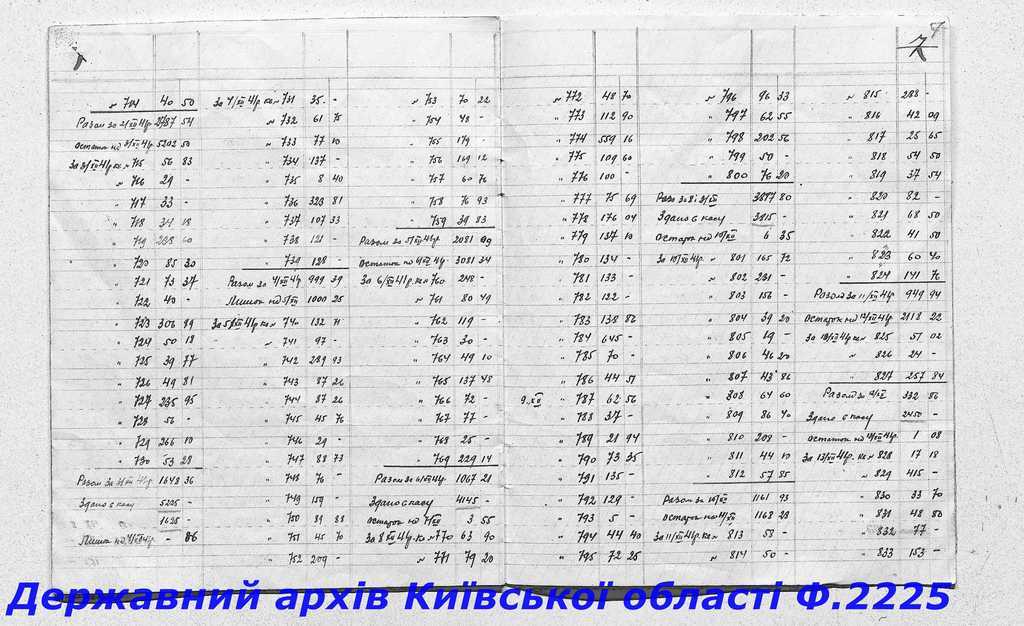 7
№ 714 40 50
Разом за 2/XII 41р. 2787 54
Остаток на 3/XII 41р 5202 50
За 3/XII 41р кв № 715 56 83
№ 716 29 -
" 717 33 -
" 718 34 18
" 719 288 60
" 720 85 30
" 721 73 37
" 722 40 -
" 723 306 89
" 724 50 18
" 725 39 77
" 726 49 81
" 727 235 95
" 728 56 -
" 729 266 10
" 730 53 28
Разом за 3/XII 41р 1648 36
Здано в касу 5225 -
1625 -
Лишок на 4/XII 41р. - 86
За 4/XII 41р. кв № 731 35. -
№ 732 61 75
" 733 77 10
" 734 137 -
" 735 8 40
" 736 328 81
" 737 107 33
" 738 121 -
" 739 128 -
Разом за 4/XII 41р 999 39
Лишок на 5/XII 1000 25
За 5/XII 41р. кв № 740 132 71
№ 741 97 -
" 742 289 93
" 743 87 26
" 744 87 26
" 745 45 76
" 746 29 -
" 747 88 73
" 748 76 -
" 749 159 -
" 750 89 88
" 751 45 70
" 752 209 -
" 753 70 22
" 754 48 -
" 755 179 -
" 756 169 12
" 757 60 76
" 758 76 93
" 759 39 83
Разом за 5/XII 41р. 2081 09
Остаток на 6/XII 41р. 3081 34
За 6/XII 41р. кв № 760 248 -
№ 761 80 49
" 762 119 -
" 763 30 -
" 764 49 10
" 765 137 48
" 766 72 -
" 767 77 -
" 768 25 -
" 769 229 14
Разом за 6/XII 41р 1067 21
Здано в касу 4145 -
Остаток на 7/XII 3 55
За 8/XII 41р. кв № 770 63 90
№ 771 79 20
№ 772 48 70
" 773 112 90
" 774 559 16
" 775 109 60
" 776 100 -
" 777 75 69
" 778 176 04
" 779 137 10
" 780 134 -
" 781 133 -
" 782 122 -
" 783 138 86
" 784 645 -
" 785 70 -
" 786 44 51
9.XII " 787 62 56
" 788 37 -
" 789 21 94
" 790 73 35
" 791 135 -
" 792 129 -
" 793 5 -
" 794 44 40
" 795 72 25
№ 796 96 33
" 797 62 55
" 798 202 56
" 799 50 -
" 800 76 20
Разо за 8 і 9/XII 3817 80
Здано в касу 3815 -
Остаток на 10/XII 6 35
За 10/XII № 801 165 72
№ 802 231 -
" 803 156 -
" 804 39 20
" 805 19 -
" 806 46 20
" 807 43 86
" 808 64 60
" 809 86 40
" 810 208 -
" 811 44 10
" 812 57 85
Разом за 10/XII 1161 93
Остаток на 11/XII 1168 28
За 11/XII 41р. кв № 813 58 -
№ 814 50 -
№ 815 288 -
" 816 42 09
" 817 25 65
" 818 54 50
" 819 37 54
" 820 82 -
" 821 68 50
" 822 41 50
" 823 60 40
" 824 141 76
Разом за 11/XII 41р 949 94
Остаток на 12/XII 41р 2118 22
За 12/XII 41р кв № 825 51 02
№ 826 24 -
" 827 257 84
Разом за 12/XII 332 86
Здано в касу 2450 -
Остаток на 13/XII 41р. 1 08
За 13/XII 41р. кв № 828 17 18
№ 829 415 -
" 830 33 70
" 831 48 80
" 832 77 -
" 833 153 -
Державний архів Київської області Ф.2225